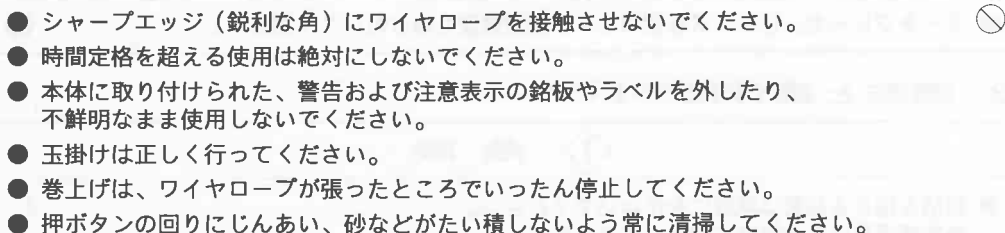 ● シャープエッジ（鋭利な角）にワイヤロープを接触させないでください。
● 時間定格を超える使用は絶対にしないでください。
● 本体に取り付けられた、警告および注意表示の銘板やラベルを外したり、
不鮮明なまま使用しないでください。
● 玉掛けは正しく行ってください。
● 巻上げは、ワイヤロープが張ったところでいったん停止してください。
● 押ボタンの回りにじんあい、砂などがたい積しないよう常に清掃してください。